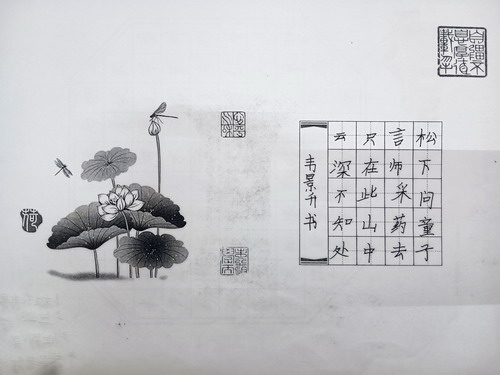 松下问童子
言师采药去
只在此山中
云深不知处
韦景升书
荷